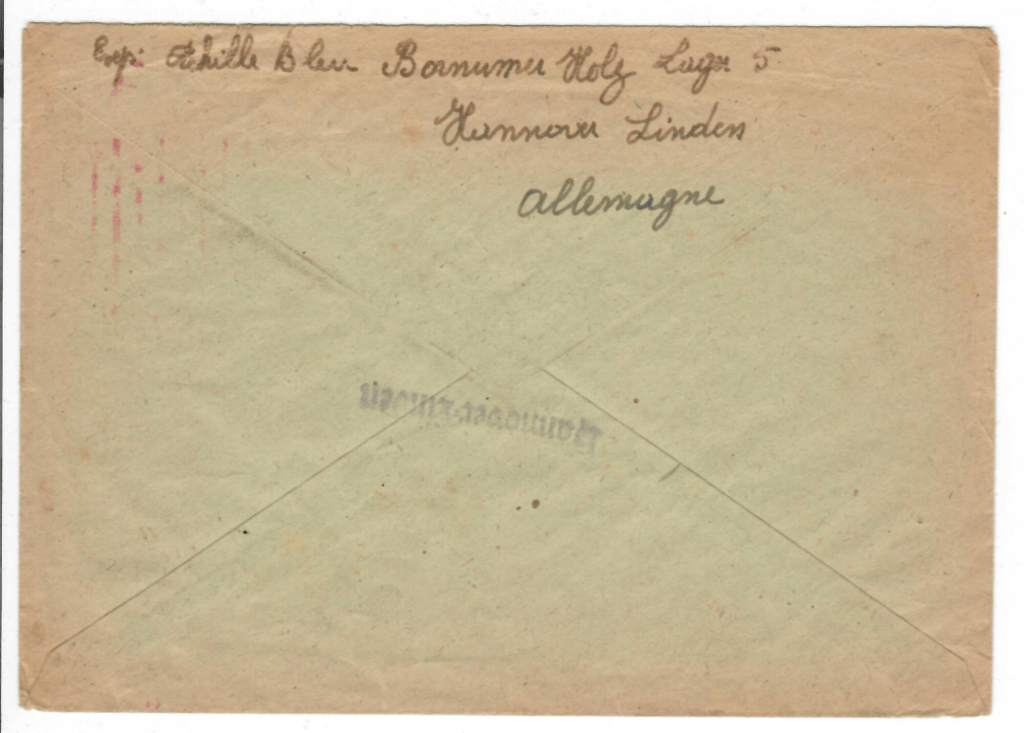 Exp: Achille Bleu Bornumer Holz Lager 5
Hannover Linden
Allemagne
Hannover-Linden